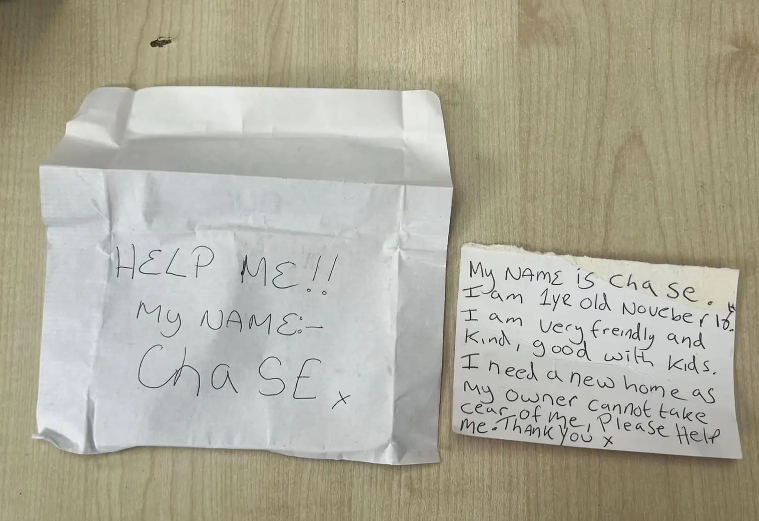 HELP ME!!
My NAME:-
ChaSE x
My NAME is chase.
I am 1yr old Noveber 18th.
I am very freindly and
kind, good with kids.
I need a new home as
my owner cannot take
cear of me, Please Help
me. Thank you x